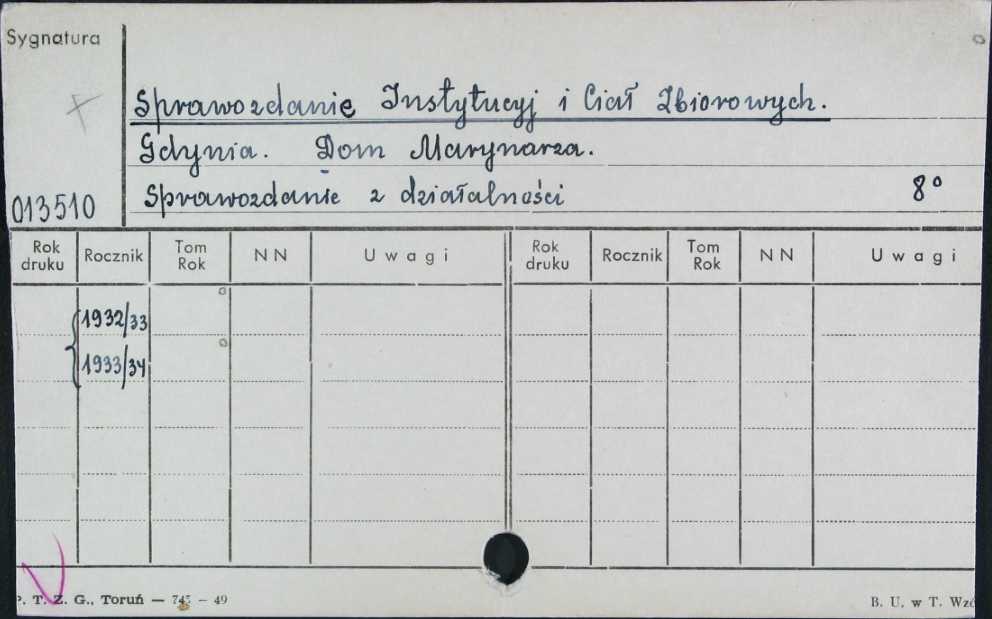 Sygnatura
Sprawozdanie Instytucyj i Ciał Zbiorowych.
Gdynia. Dom Marynarza.
Sprawozdanie z działalności 8°
013510
Rok druku Rocznik Tom Rok NN Uwagi Rok druku Rocznik Tom Rok NN Uwagi
1932/33
1933/34
P. T. Z. G., Toruń — 745 - 49 B. U. w T.